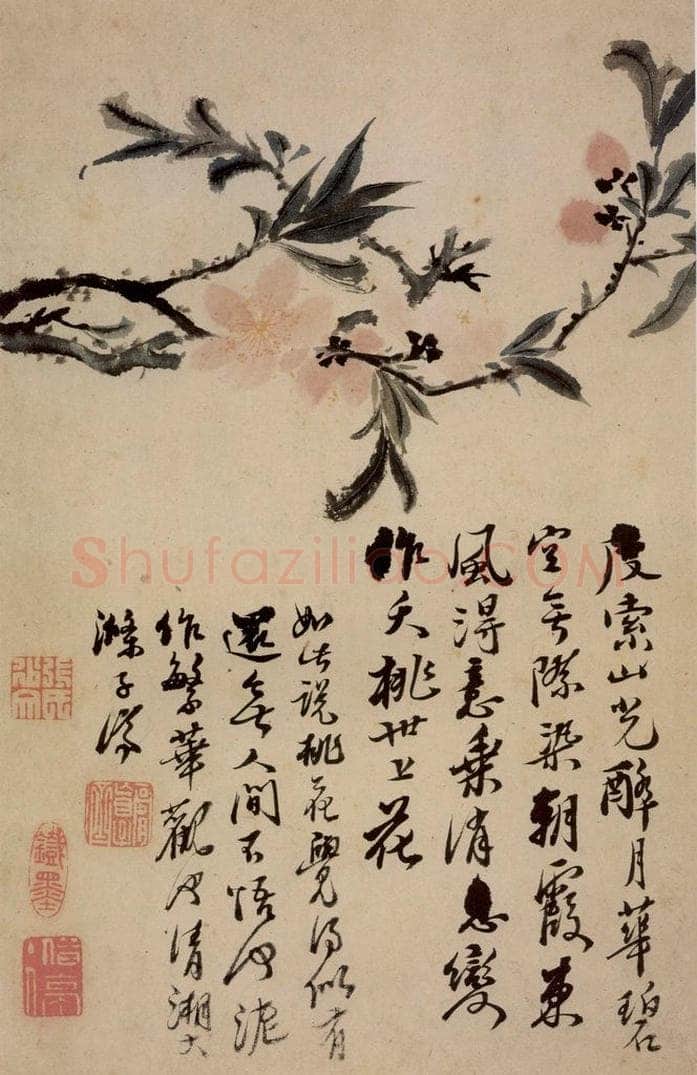 度索山光醉月華碧
空無際染朝霞東
風得意乘消息變
作夭桃世上花
如此說桃花覺得似有
還無人間不悟何泥
作繁華觀清湘大
滌子濟
鐵墨
Shufaziliao.COM